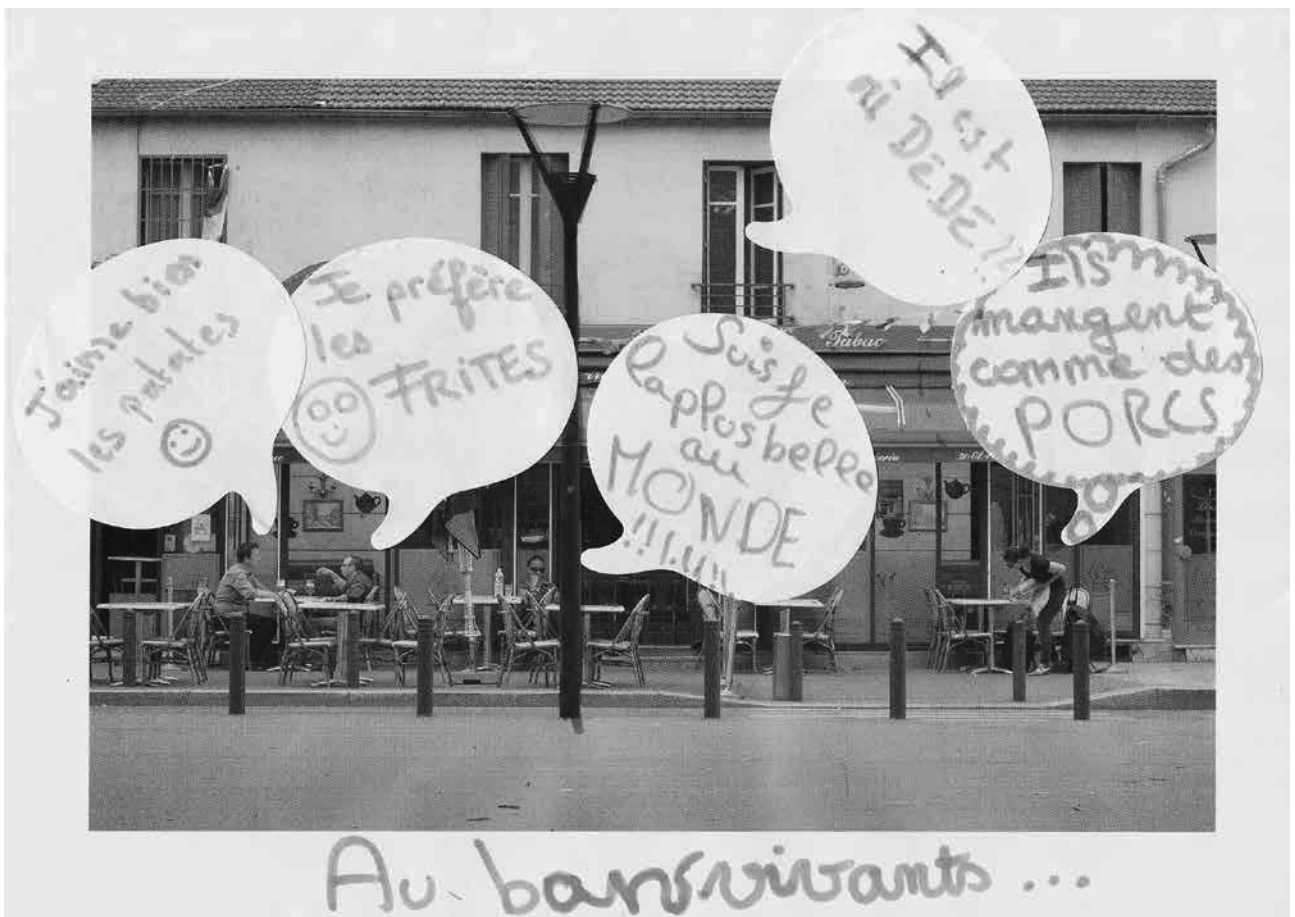 J'aime bien
les patates
Je préfère
les
FRITES
Suis Je
la plus belle
au
MONDE
!!!!!!!!
Il est
DÉDÉ ??
Ils
mangent
comme des
PORCS
Tabac
Au bansvivants ...